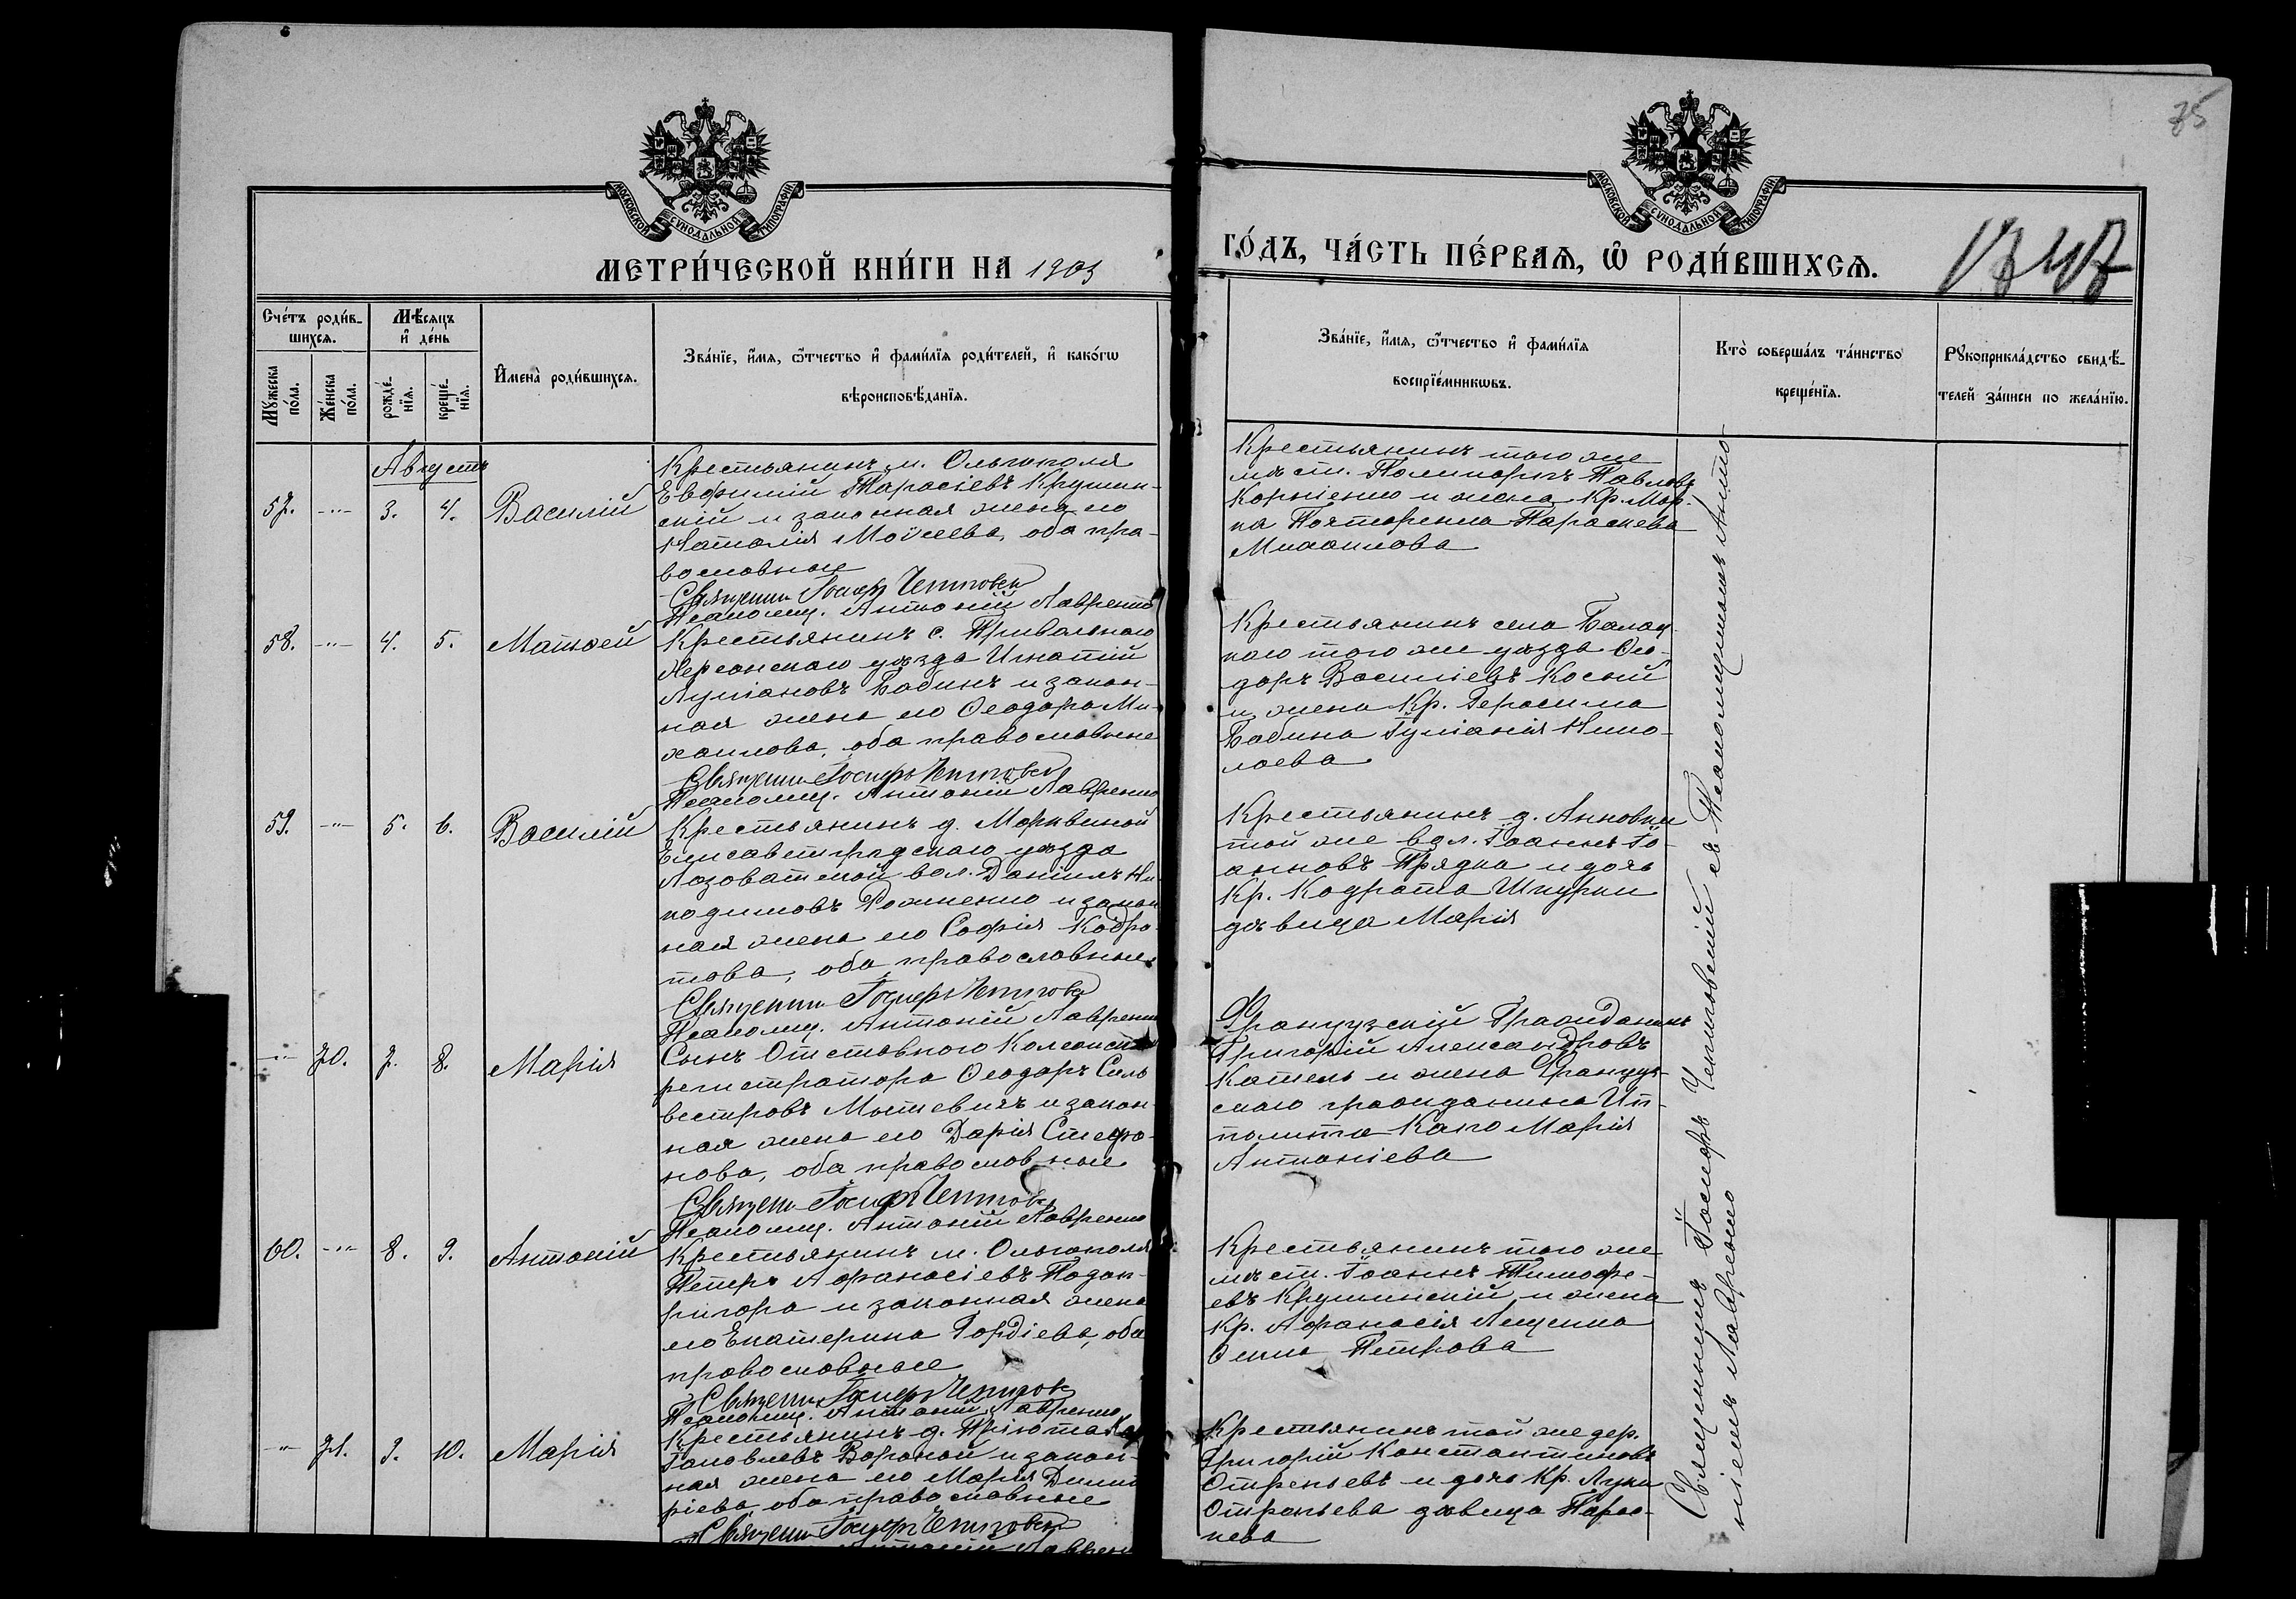 75
МОСКОВСКОЙ СУНОДАЛЬНОЙ ТИПОГРАФІИ
МОСКОВСКОЙ СУНОДАЛЬНОЙ ТИПОГРАФІИ
МЕТРИ́ЧЕСКОЙ КНИ́ГИ НА 1903
ГО́ДЪ, ЧА́СТЬ ПЕ́РВАѦ, Ѽ РОДИ́ВШИХСѦ.
Сче́тъ роди́в-
шихсѧ.
Мꙋ́жеска
по́ла.
Же́нска
по́ла.
Мѣ́сѧцъ
и҆ де́нь
рожде́-
нїѧ.
креще́-
нїѧ.
И҆мена̀ роди́вшихсѧ.
Зва́нїе, и҆́мѧ, ѻ҆́тчество и҆ фами́лїѧ роди́телей, и҆ како́гѡ
вѣроисповѣ́данїѧ.
Зва́нїе, и҆́мѧ, ѻ҆́тчество и҆ фами́лїѧ
воспрїе́мникѡвъ.
Кто̀ соверша́лъ та́инство
креще́нїѧ.
Рꙋкоприкла́дство свидѣ́-
телей за́писи по жела́нїю.
Августъ
57. -"- 3. 4. Василій
Крестьянинъ м. Ольгополя
Евфимій Тарасіевъ Крушин-
скій и законная жена его
Наталія Моѵсеева, оба пра-
вославные
Священн. Іосифъ
Псаломщ. Антоній Лавренко
Крестьянинъ того же
мѣст. Поликарпъ Павловъ
Корніенко и жена кр. Мар-
ка Параскева
Михаилова
58. -"- 4. 5. Матѳей
Крестьянинъ с. Привольнаго
Херсонскаго уѣзда Игнатій
Луліановъ Бабинъ и закон-
ная жена его Ѳеодора Ми-
хаилова, оба православные
Священн. Іосифъ
Псаломщ. Антоній Лавренко
Крестьянинъ села Балац-
каго того же уѣзда Ѳео-
доръ Василіевъ Косый
и жена кр. Герасима
Бабина Іуліанія Нико-
лаева
59. -"- 5. 6. Василій
Крестьянинъ д. Марьиной
Елисаветградскаго уѣзда
Лозоватской вол. Даніилъ Ни-
кодимовъ и закон
ная жена его Софія Кодра-
това, оба православные
Священн. Іосифъ
Псаломщ. Антоній Лавренко
Крестьянинъ д. Анновки
той же вол. Іоаннъ Іо-
анновъ Прядка и дочь
кр. Кодрата Шкурки
дѣвица Марія
-"- 70. 7. 8. Марія
Сынъ Отставного Коллежск
регистратора Ѳеодоръ Силь
вестровъ и закон-
ная жена его Дарія Стефа-
нова, оба православные
Священн. Іосифъ
Псаломщ. Антоній Лавренко
Французскій Гражданинъ
Григорій Александровъ
Катель и жена Француз-
скаго гражданина Ип-
полита Капо Марія
Антоніева
60. -"- 8. 9. Антоній
Крестьянинъ м. Ольгополя
Петръ Афанасіевъ Подоп-
ригора и законная жена
его Екатерина Гордіева, оба
православные
Священн. Іосифъ
Псаломщ. Антоній Лавренко
Крестьянинъ того же
мѣст. Іоаннъ Тимофе-
евъ Крушинскій и жена
кр. Афанасія Лещенка
Петрова
-"- 71. 9. 10. Марія
Крестьянинъ д. Пріюта
Іаковлевъ Вороной и закон-
ная жена его Марія Димит
ріева, оба православные
Священн. Іосифъ
Антоній Лавренко
Крестьянинъ той же дер.
Григорій Константиновъ
Отреньевъ и дочь кр. Луки
Отреньева дѣвица Парас-
кева
Священникъ Іосифъ съ Псаломщикомъ Анто-
ніемъ Лавренко